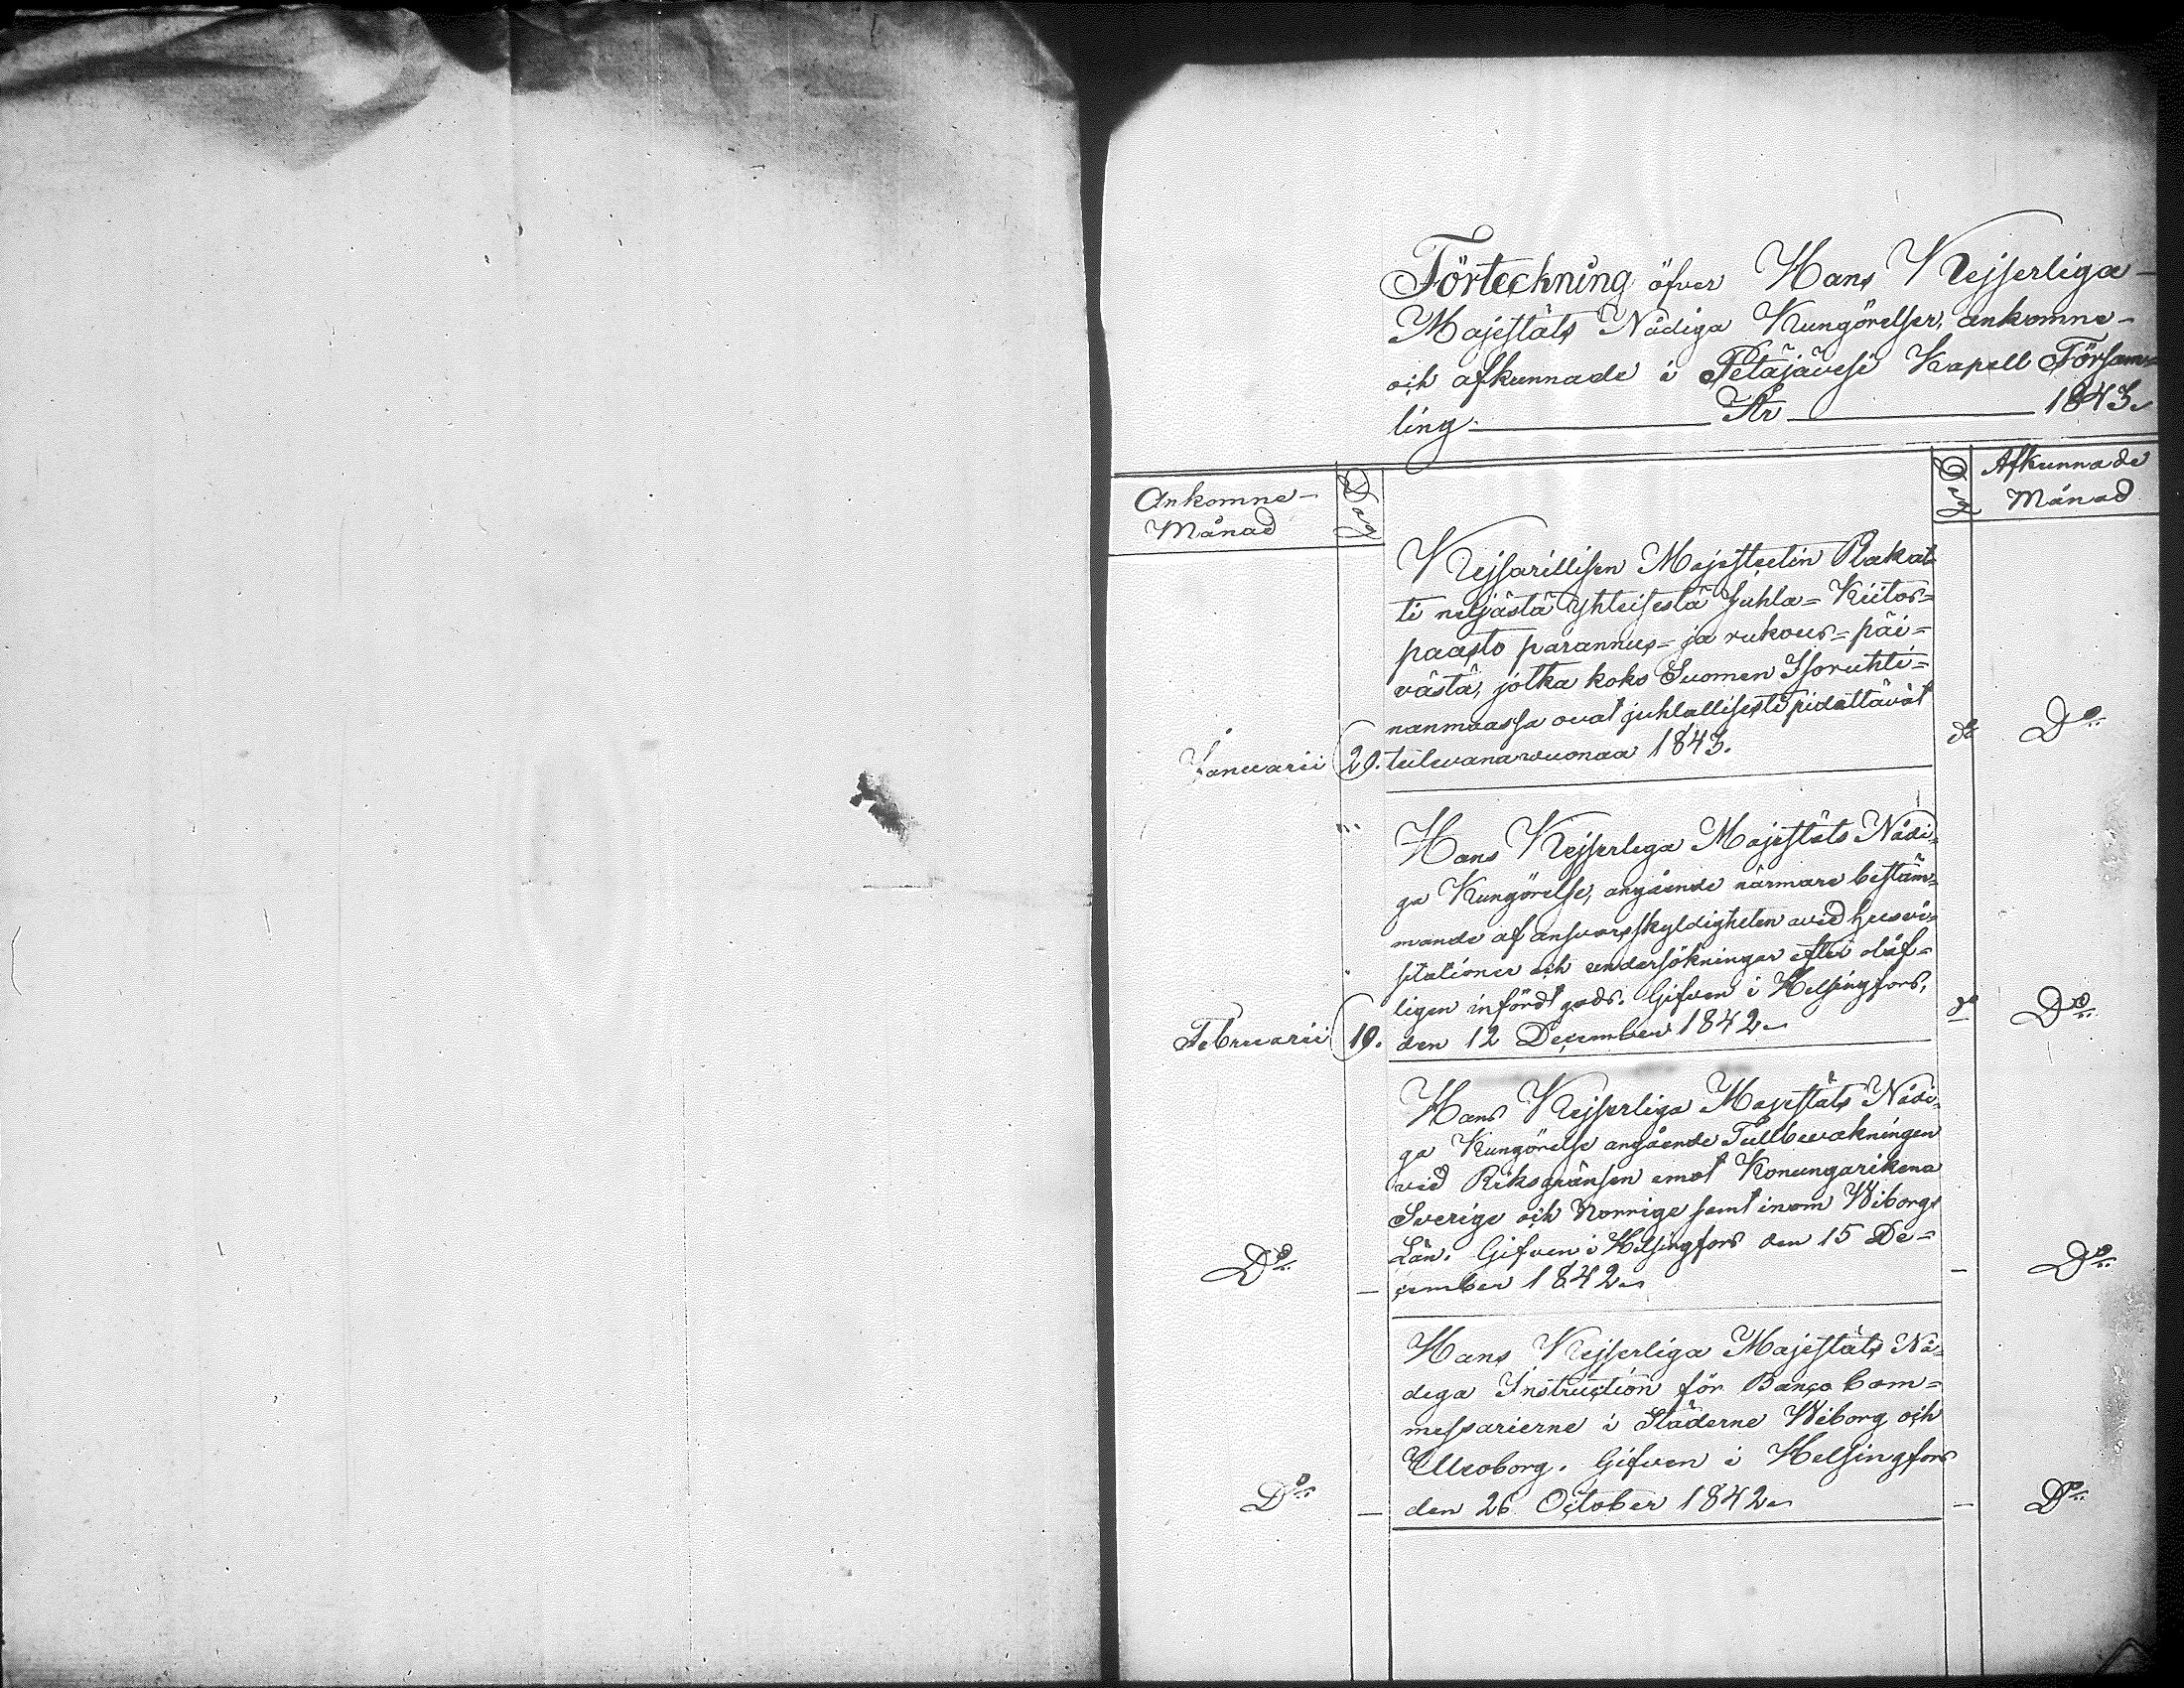 Förteckning öfver Hans Kejserliga-
Majestäts Nådiga Kungörelser, ankomne-
och afkunnade i Petäjävesi Kapell Försam=
ling. År 1843.
Ankomne-
Månad
Dag
Dag
Afkunnade
Månad
Kejsarillisen Majesteetin Plakat-
ti neljästä yhteisestä Juhla= Kiitos=
paasto parannus= ja rukous= päi=
västä, jotka koko Suomen Isoruhti=
nanmaassa ovat juhlallisesti pidettävät
Januarii 29. tulevana wuonaa 1843. do Do
Hans Kejserliga Majestäts Nådi=
ga Kungörelse, angående närmare bestäm=
mande af ansvarsskyldigheten wid husvi=
sitationer och undersökningar efter olaf=
ligen infördt gods. Gifven i Helsingfors,
Februarii 19. den 12 December 1842. do Do
Hans Kejserliga Majestäts Nådi=
ga Kungörelse angående Tullbevakningen
vid Riksgränsen emot Konungarikena
Sverige och Norrige samt inom Wiborgs
Län. Gifven i Helsingfors den 15 De=
Do — cember 1842. — Do
Hans Kejserliga Majestäts Nå=
diga Instruction för Banco Com=
missarierne i Städerne Wiborg och
Uleåborg. Gifven i Helsingfors
Do — den 26 October 1842. — Do